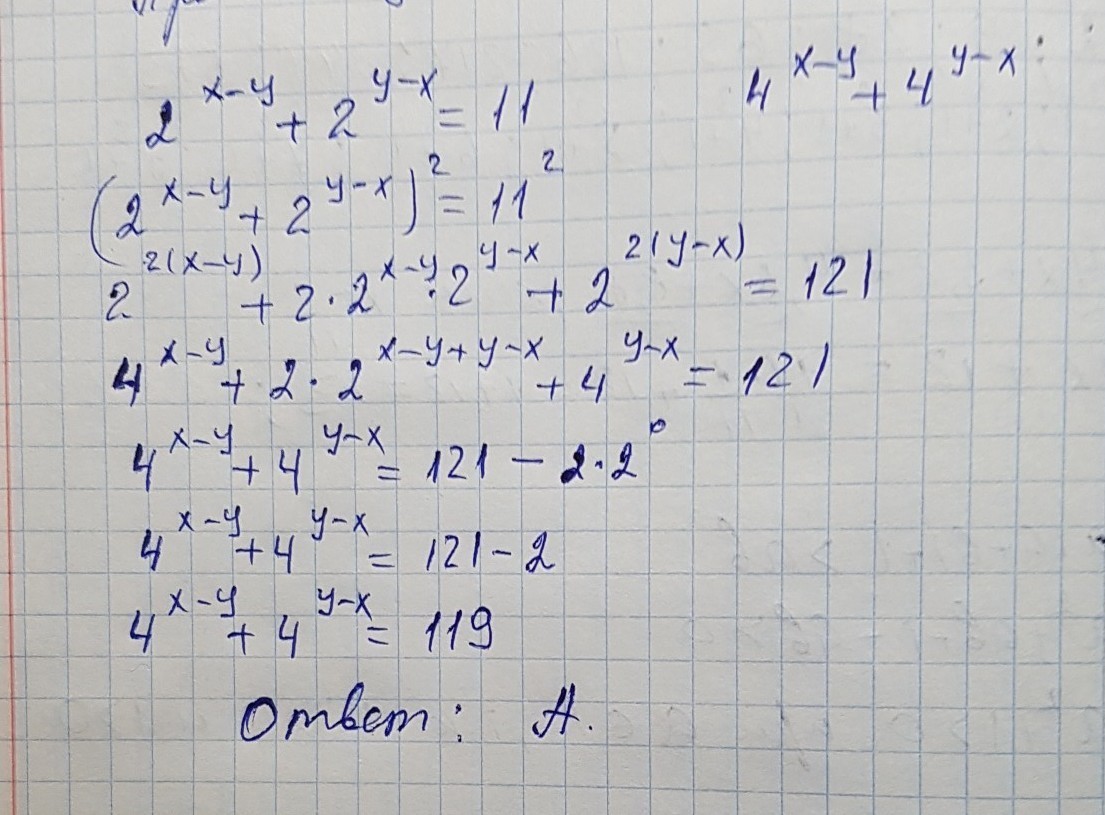 2^{x-y} + 2^{y-x} = 11
4^{x-y} + 4^{y-x} :
(2^{x-y} + 2^{y-x})^2 = 11^2
2^{2(x-y)} + 2·2^{x-y}·2^{y-x} + 2^{2(y-x)} = 121
4^{x-y} + 2·2^{x-y+y-x} + 4^{y-x} = 121
4^{x-y} + 4^{y-x} = 121 - 2·2^0
4^{x-y} + 4^{y-x} = 121 - 2
4^{x-y} + 4^{y-x} = 119
Ответ: А.